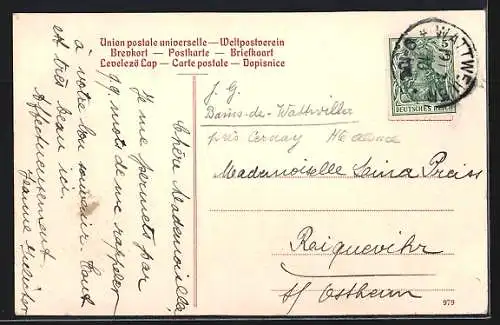 Union postale universelle — Weltpostverein
Brevkort — Postkarte — Briefkaart
Levelező Lap — Carte postale — Dopisnice
WATTWEILER
DEUTSCHES REICH
J. G.
Bains-de-Wattviller
près Cernay Hte Alsace
Mademoiselle Preiss
Reiquevihr
s/ Ostheim
979
Chère Mademoiselle,
Je me permets par
qq mots de me rappeler
à votre bon souvenir. Tout
et très beau ici.
Affectueusement
Jeanne